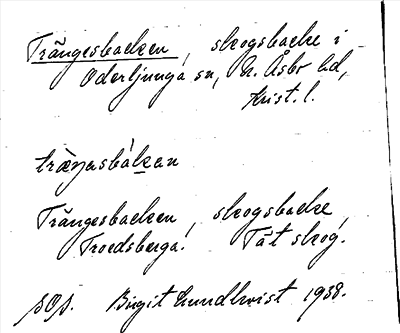 Trängesbacken, skogsbacke i
Oderljunga sn, N. Åsbo hd,
Krist. l.
träŋəsbàkan
Trängesbacken, skogsbacke,
Troedsberga. Tät skog.
Birgit Lundkvist 1938.